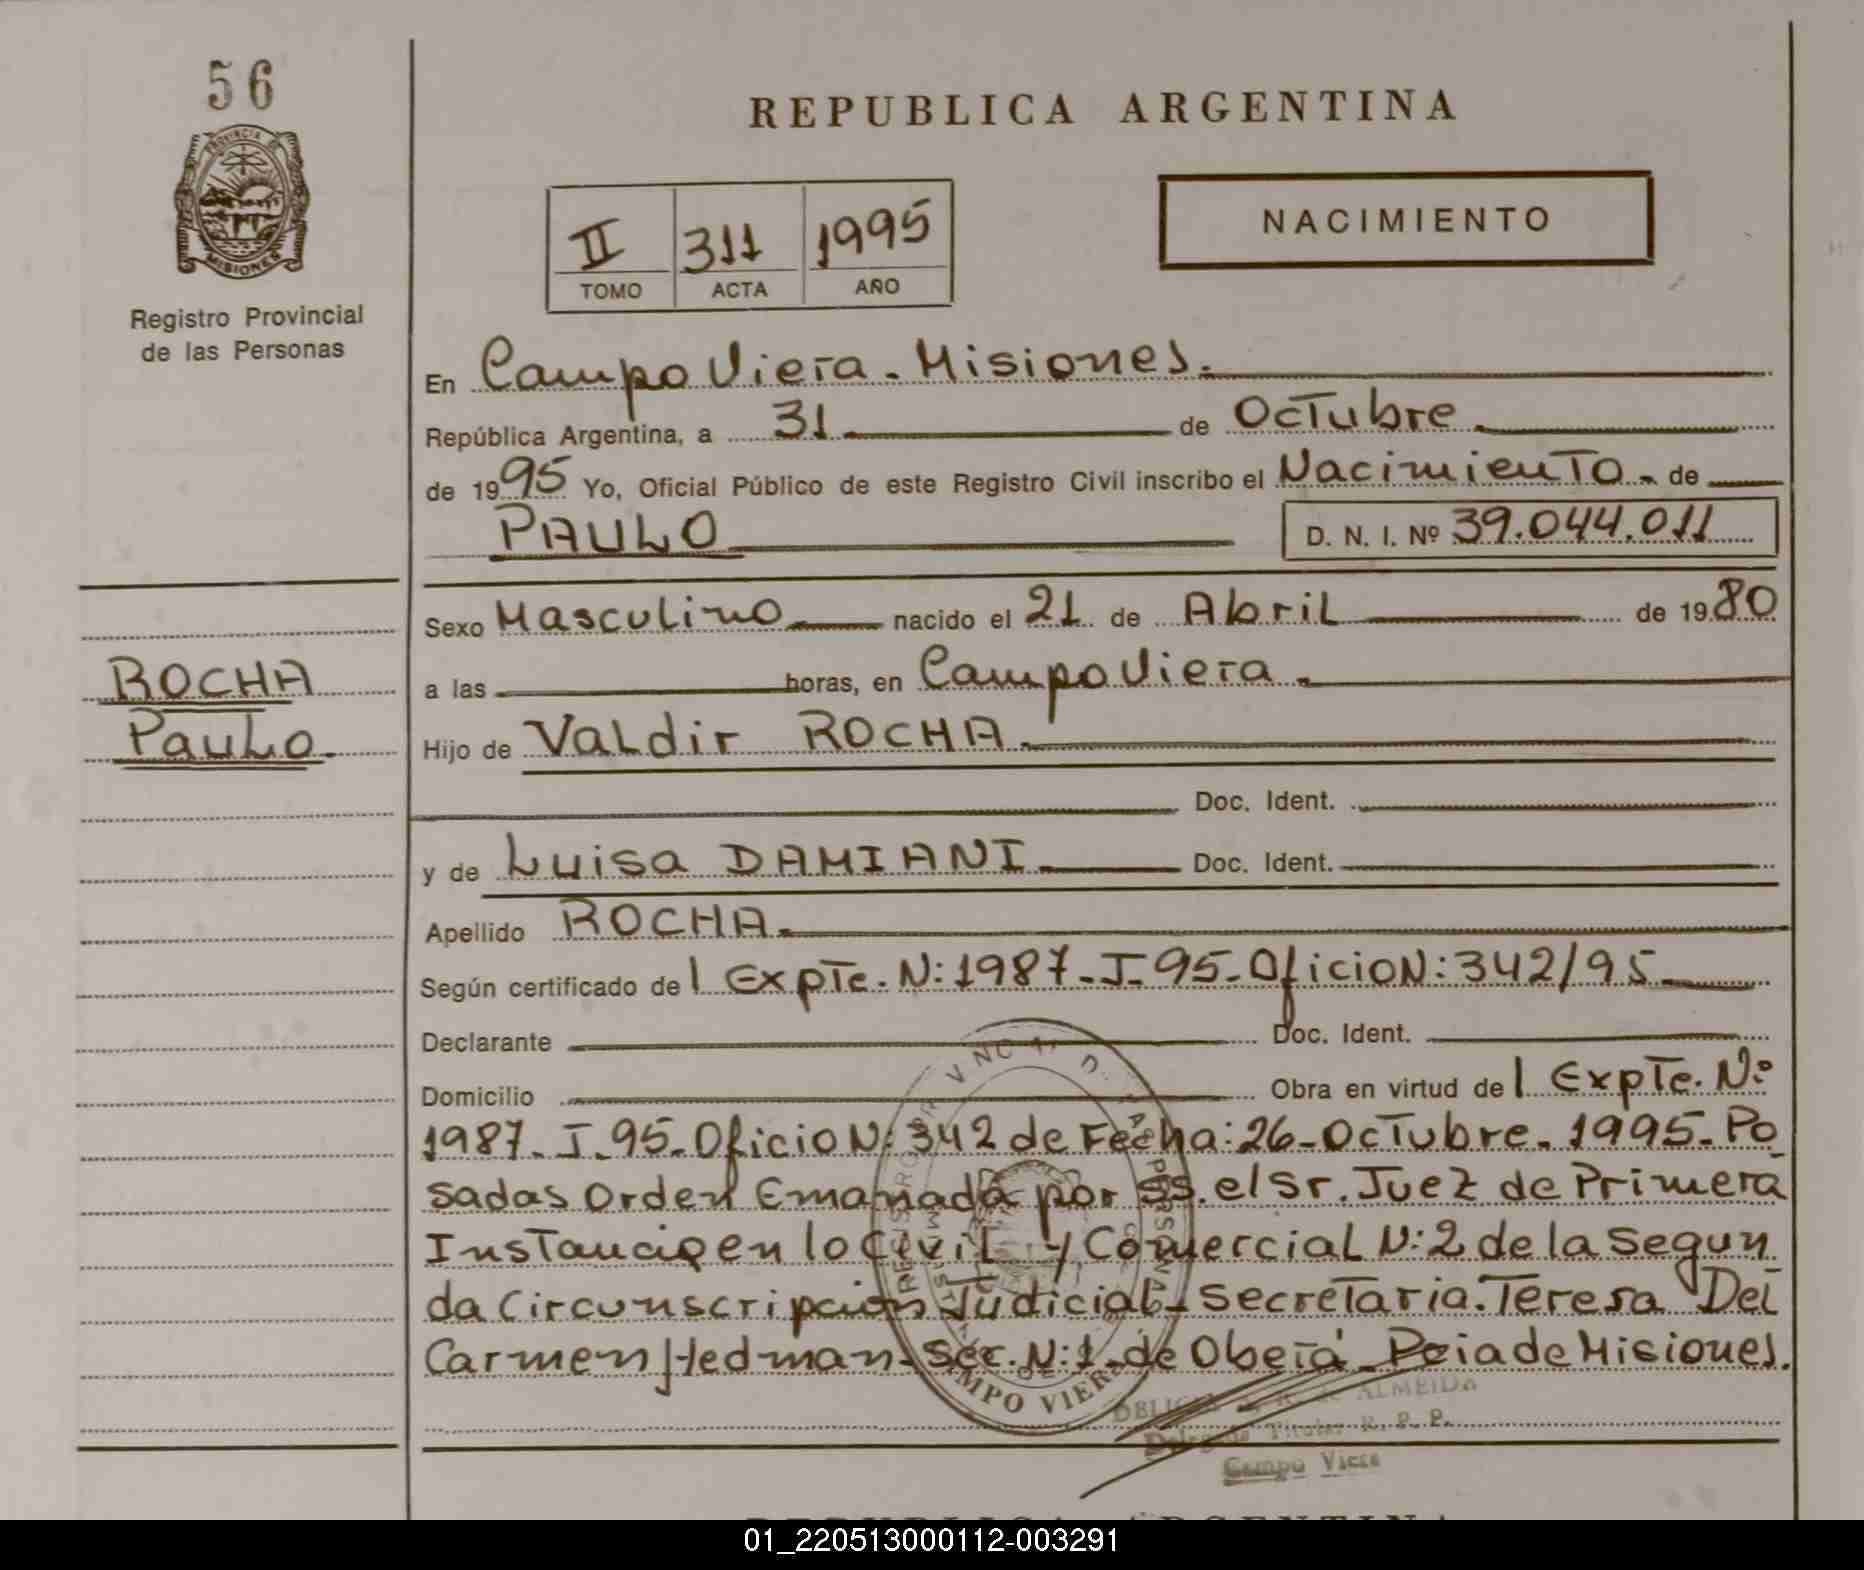 56
PROVINCIA DE
MISIONES
Registro Provincial
de las Personas
REPUBLICA ARGENTINA
II 311 1995
TOMO ACTA AÑO
NACIMIENTO
En Campo Viera - Misiones.
República Argentina, a 31 de Octubre
de 1995 Yo, Oficial Público de este Registro Civil inscribo el Nacimiento - de
PAULO D. N. I. Nº 39.044.011
Sexo Masculino nacido el 21 de Abril de 1980
ROCHA
Paulo.
a las horas, en Campo Viera
Hijo de Valdir ROCHA.
Doc. Ident.
y de Luisa DAMIANI Doc. Ident.
Apellido ROCHA.
Según certificado de l Expte. N: 1987-I-95-Oficio N: 342/95
Declarante Doc. Ident.
Domicilio Obra en virtud de l Expte. Nº
1987-I-95-Oficio N: 342 de Fecha: 26-Octubre-1995-Po
sadas Orden Emanada por SS. el Sr. Juez de Primera
Instancia en lo Civil y Comercial N: 2 de la Segun
da Circunscripción Judicial - Secretaria. Teresa Del
Carmen Hedman - Sec. N: 1 - de Oberá - Pcia de Misiones.
ALMEIDA
Titular R. P. P.
Campo Viera
REPUBLICA ARGENTINA
01_220513000112-003291